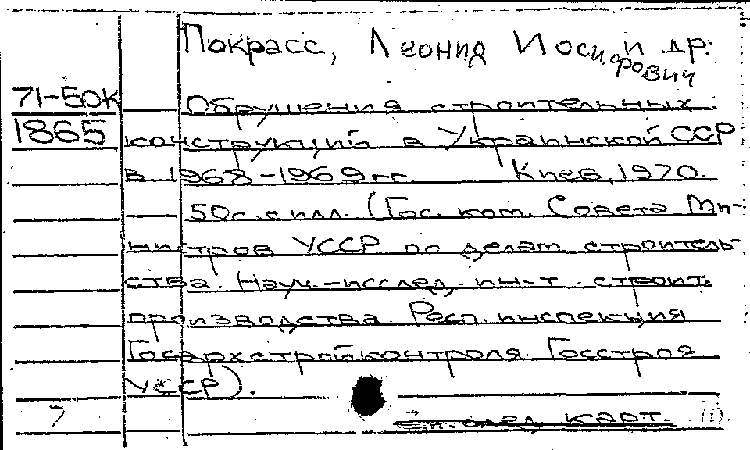 Покрасс, Леонид Иосифович и др.
71-50к
1865
Обрушения строительных
конструкций в Украинской ССР
в 1968-1969 гг. Киев, 1970.
50 с. с илл. (Гос. ком. Совета Ми-
нистров УССР по делам строитель-
ства. Науч.-исслед. ин-т строит.
производства. Респ. инспекция
Госархстройконтроля Госстроя
УССР).
7
См. след. карт.